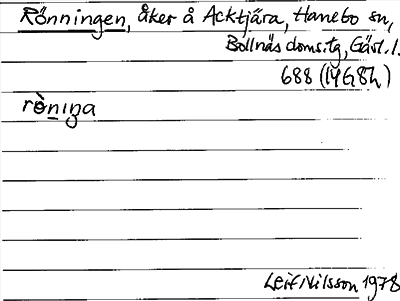 Rönningen, åker å Acktjära, Hanebo sn,
Bollnäs doms:tg, Gävl. l.
688 (14G8h)
rö̀nıŋa
Leif Nilsson 1978